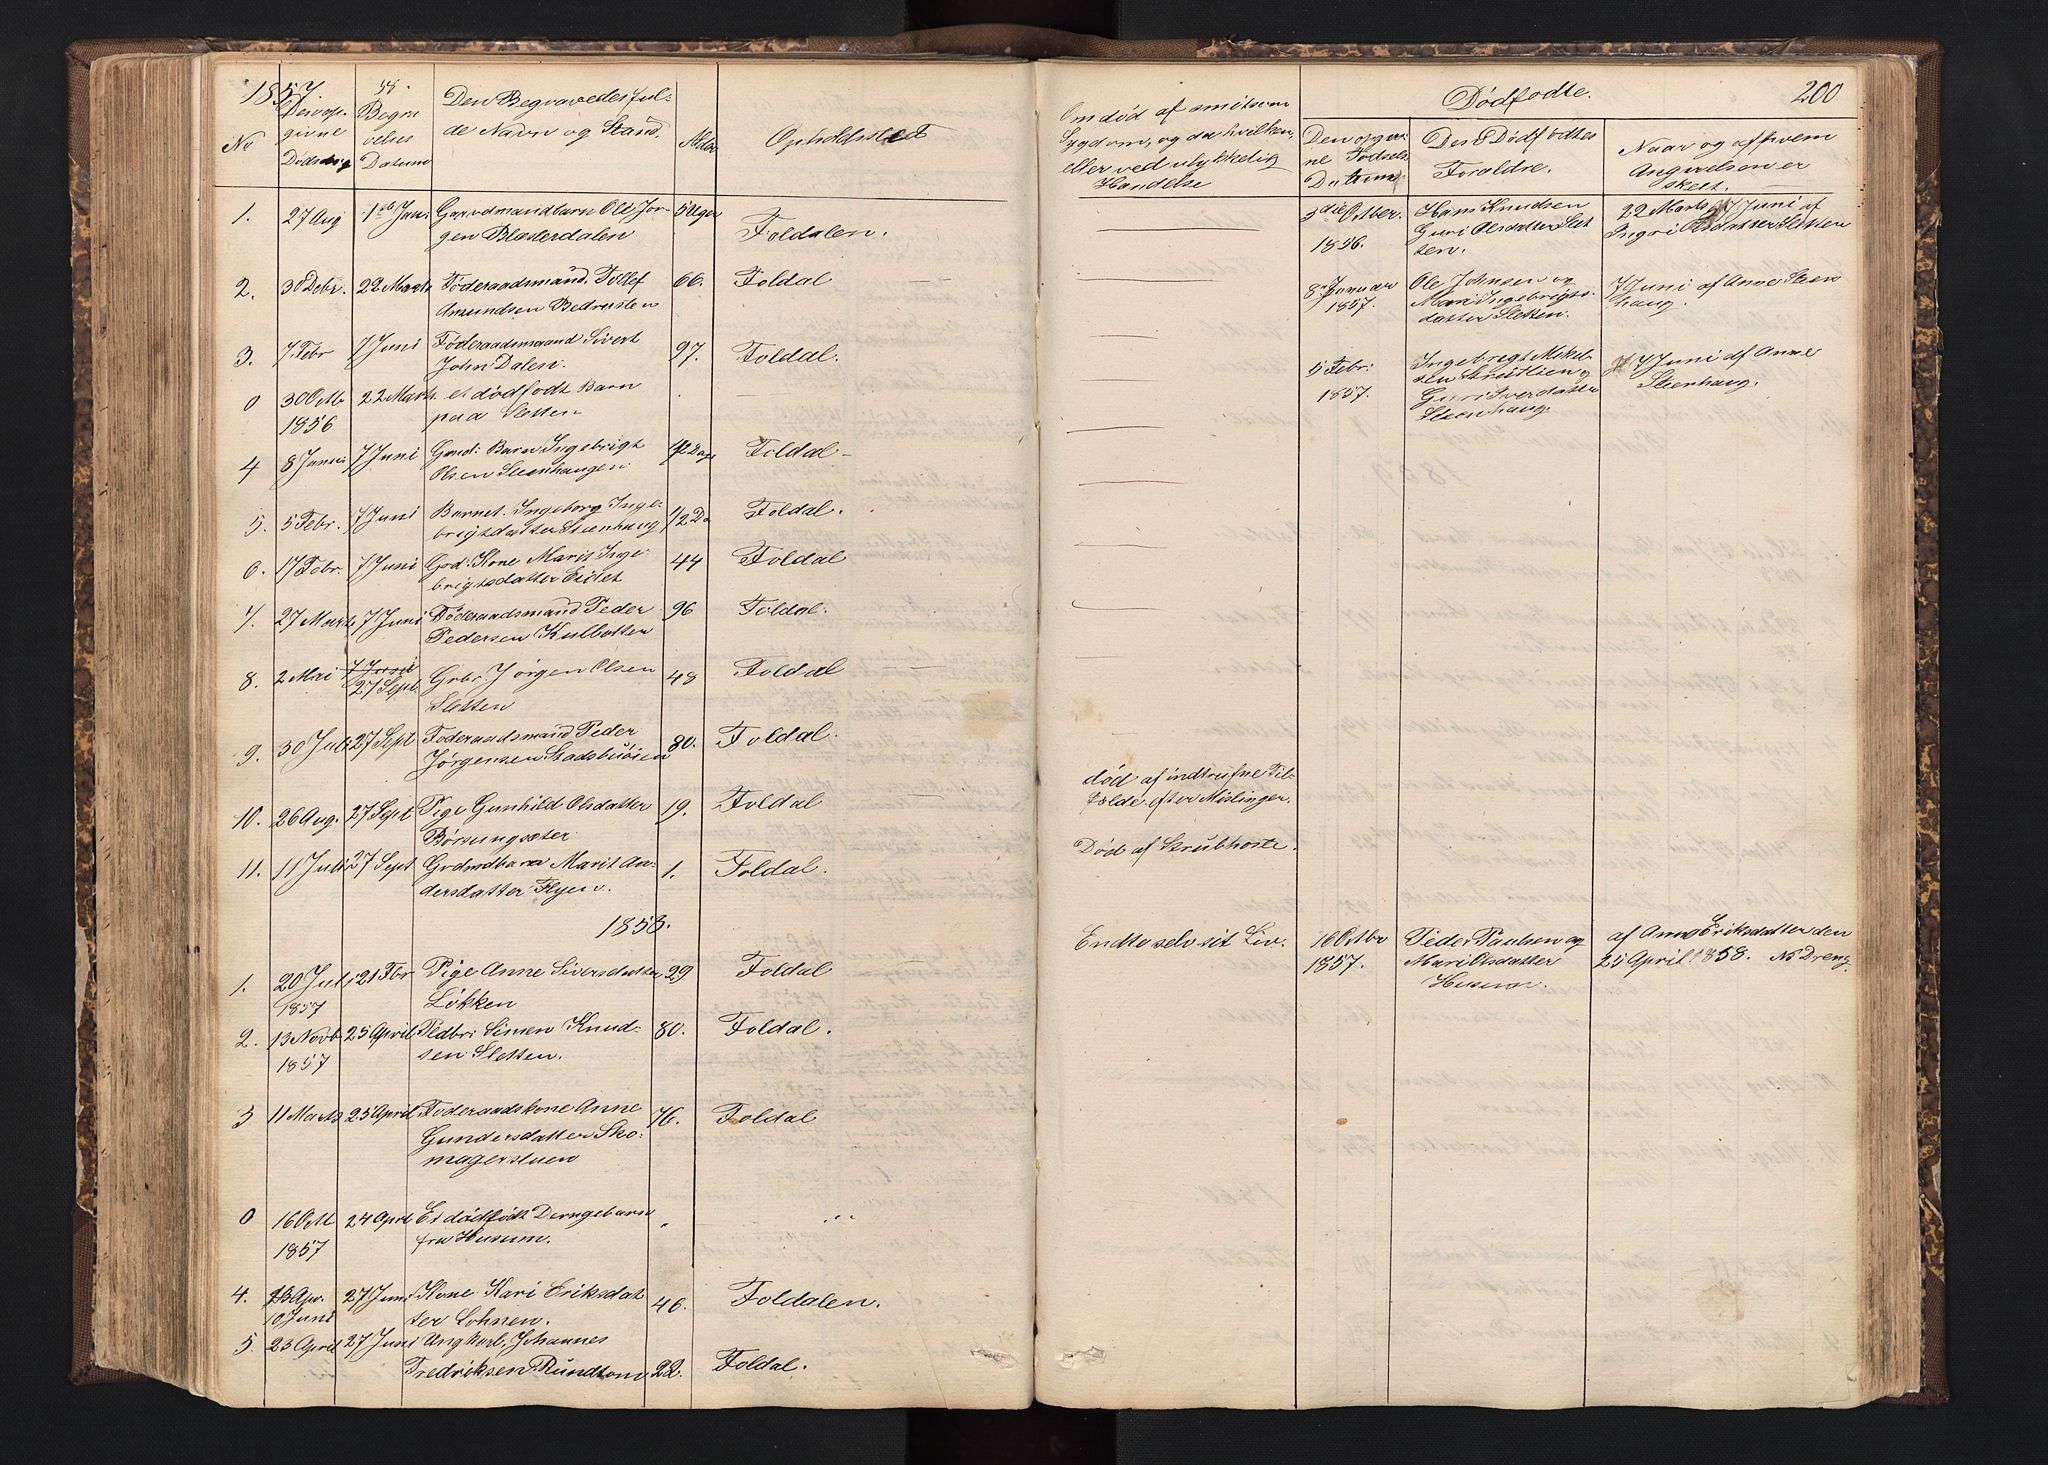 1857.
No
givne
Dødsdag
Begra
velses
Datum
Den Begravedes ful-
de Navn og Stand.
Alder
Opholdssted
1. 27 Aug 1ste Jan: Gaardmandbarn Ole Jør- 5 Uger Foldalen.
gen Blæsterdalen
2. 30 Debr. 22 Marts Føderaadsmand Tollef 66. Foldal
Amundsen Bedrusten
3. 7 Febr 7 Juni Føderaadsmand Sivert 97. Foldal.
John Dalen.
0 30 Octb 22 Marts et dødfødt Barn
1856 paa Sletten
4 8 Janu: 7 Juni Gmd: Barn Ingebrigt 1/2 Dage Foldal
Olsen Steenhaugen
5. 5 Febr. 7 Juni Barnet. Ingeborg Inge- 1/2 Da Foldal.
brigtsdatter Steenhaug
6. 17 Febr. 7 Juni Gmd: Kone Marit Inge- 44 Foldal
brigtsdatter Eidet
7. 27 Marts 7 Juni Føderaadsmand Peder 96 Foldal.
Pedersen Kulbotten
8. 2 Mai 7 Juni
27 Sept Grbr. Jørgen Olsen 48 Foldal
Sletten
9. 30 Juli 27 Sept Foderaadsmand Peder 80. Foldal.
Jørgensen Stadsbuøien
10. 26 Aug. 27 Sept Pige Gunhild Olsdatter 19. Foldal
Børsungsæter
11. 11 Juli 27 Sept Grdmdbarn Marit An- 1. Foldal.
dersdatter Flyen.
1858.
1. 20 Juli 21 Fbr Pige Anne Siversdatter 29 Foldal
1857 Løkken
2. 13 Novb 25 April Pldbr: Simen Knud- 80. Foldal.
1857 sen Sletten.
3 11 Marts 25 April Foderaadskone Anne 76. Foldal
Gundersdatter Sko-
magerstuen
0 16 Octb 24 April Et dødfødt Derngebarn " "
1857 fra Husum.
4. 13 Apr. 27 Juni Kone Kari Eriksdat 46. Foldalen.
10 Juni ter Lohnen.
5. 23 April 27 Juni Ungkarl, Johannes
Fredriksen Rundtom 22. Foldal.
Om død af smitsom
Sygdom, og da hvilken,
eller ved ulykkelig
Hændelse
Dødfødte.
200
Den opgiv-
ne Fødsels
Datum
Det Dødfødtes
Forældre.
Naar og af hvem
Angivelsen er
skeet.
3die Octber. Hans Knudsen 22 Marts 7 Juni af
1856. Guri Olsdatter Slet Ingri Olsdatter Sletten
ten.
8 Januar Ole Johnsen og 7 Juni af Anne Steen
1857. Mari Ingebrigts- haug.
datter Sletten.
5 Febr: Ingebrigt Mikel 7 Juni af Anne
1857. Guri Sverdatter Steenhaug.
Steenhaug.
død af indtrufne Til-
fælde efter Mislinger.
Død af Strubhoste.
Endte selv sit Liv. 16 Octbr Peder Paulsen og af Anne Eriksdatter den
1857. Mari Olsdatter 25 April 1858. No Dreng.
Husum.